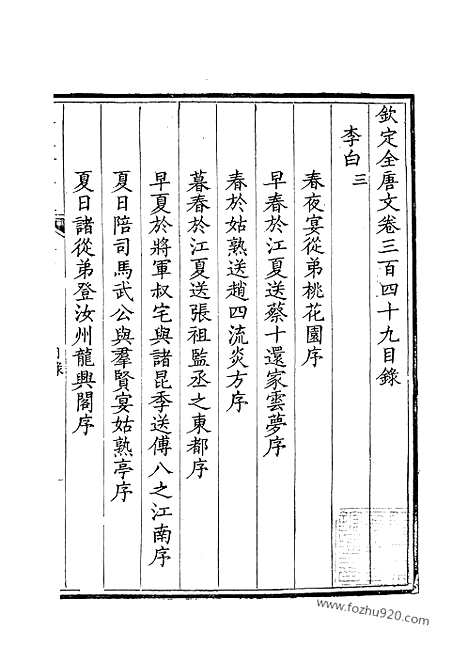 欽定全唐文卷三百四十九目錄
李白三
春夜宴從弟桃花園序
早春於江夏送蔡十還家雲夢序
春於姑熟送趙四流炎方序
暮春於江夏送張祖監丞之東都序
早夏於將軍叔宅與諸昆季送傅八之江南序
夏日陪司馬武公與羣賢宴姑熟亭序
夏日諸從弟登汝州龍興閣序
www.fozhu920.com